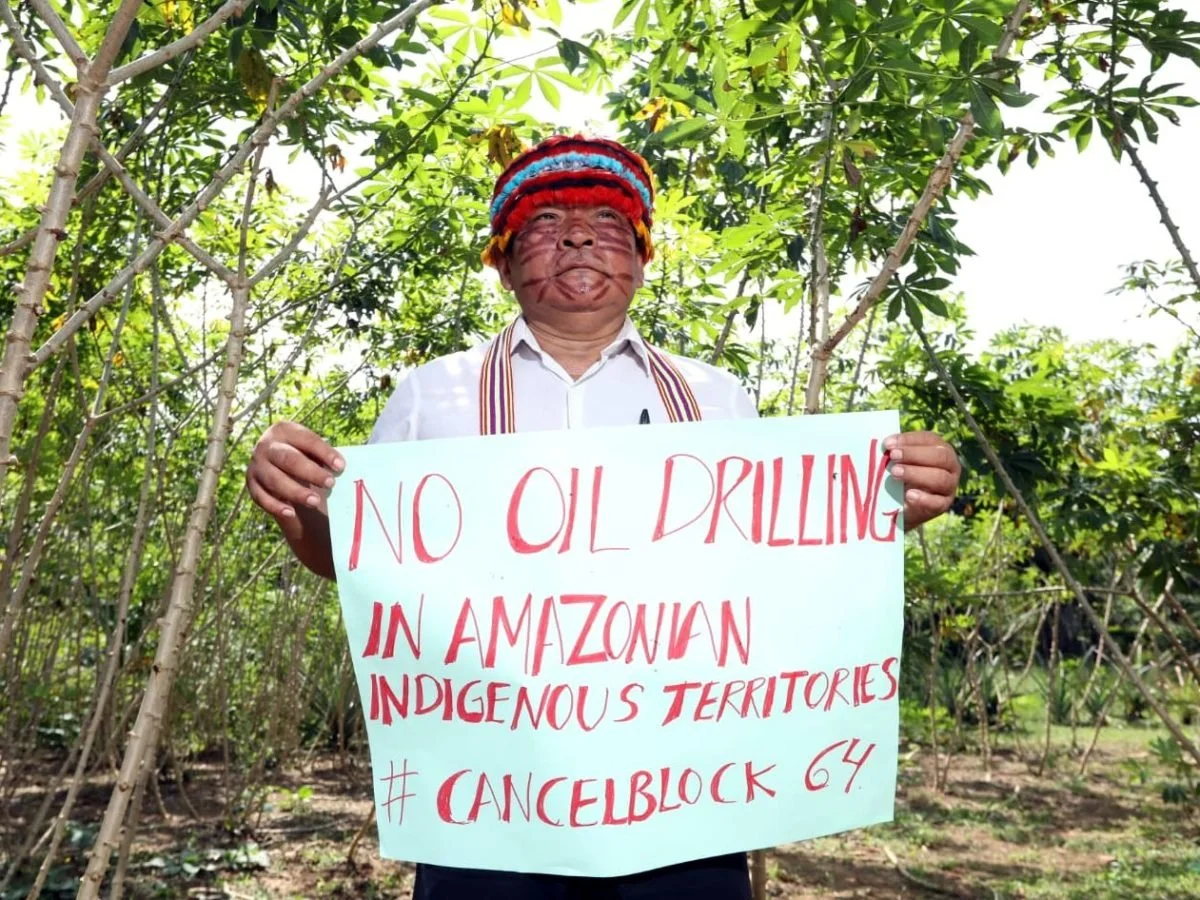 NO OIL DRILLING
IN AMAZONIAN
INDIGENOUS TERRITORIES
# CANCELBLOCK 64